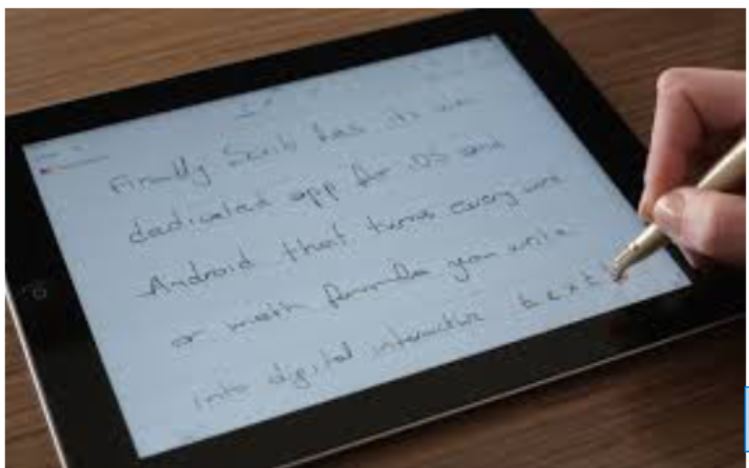 Finally Scrib has its own
dedicated app for iOS and
Android that turns every word
or math formula you write
into digital interactive text